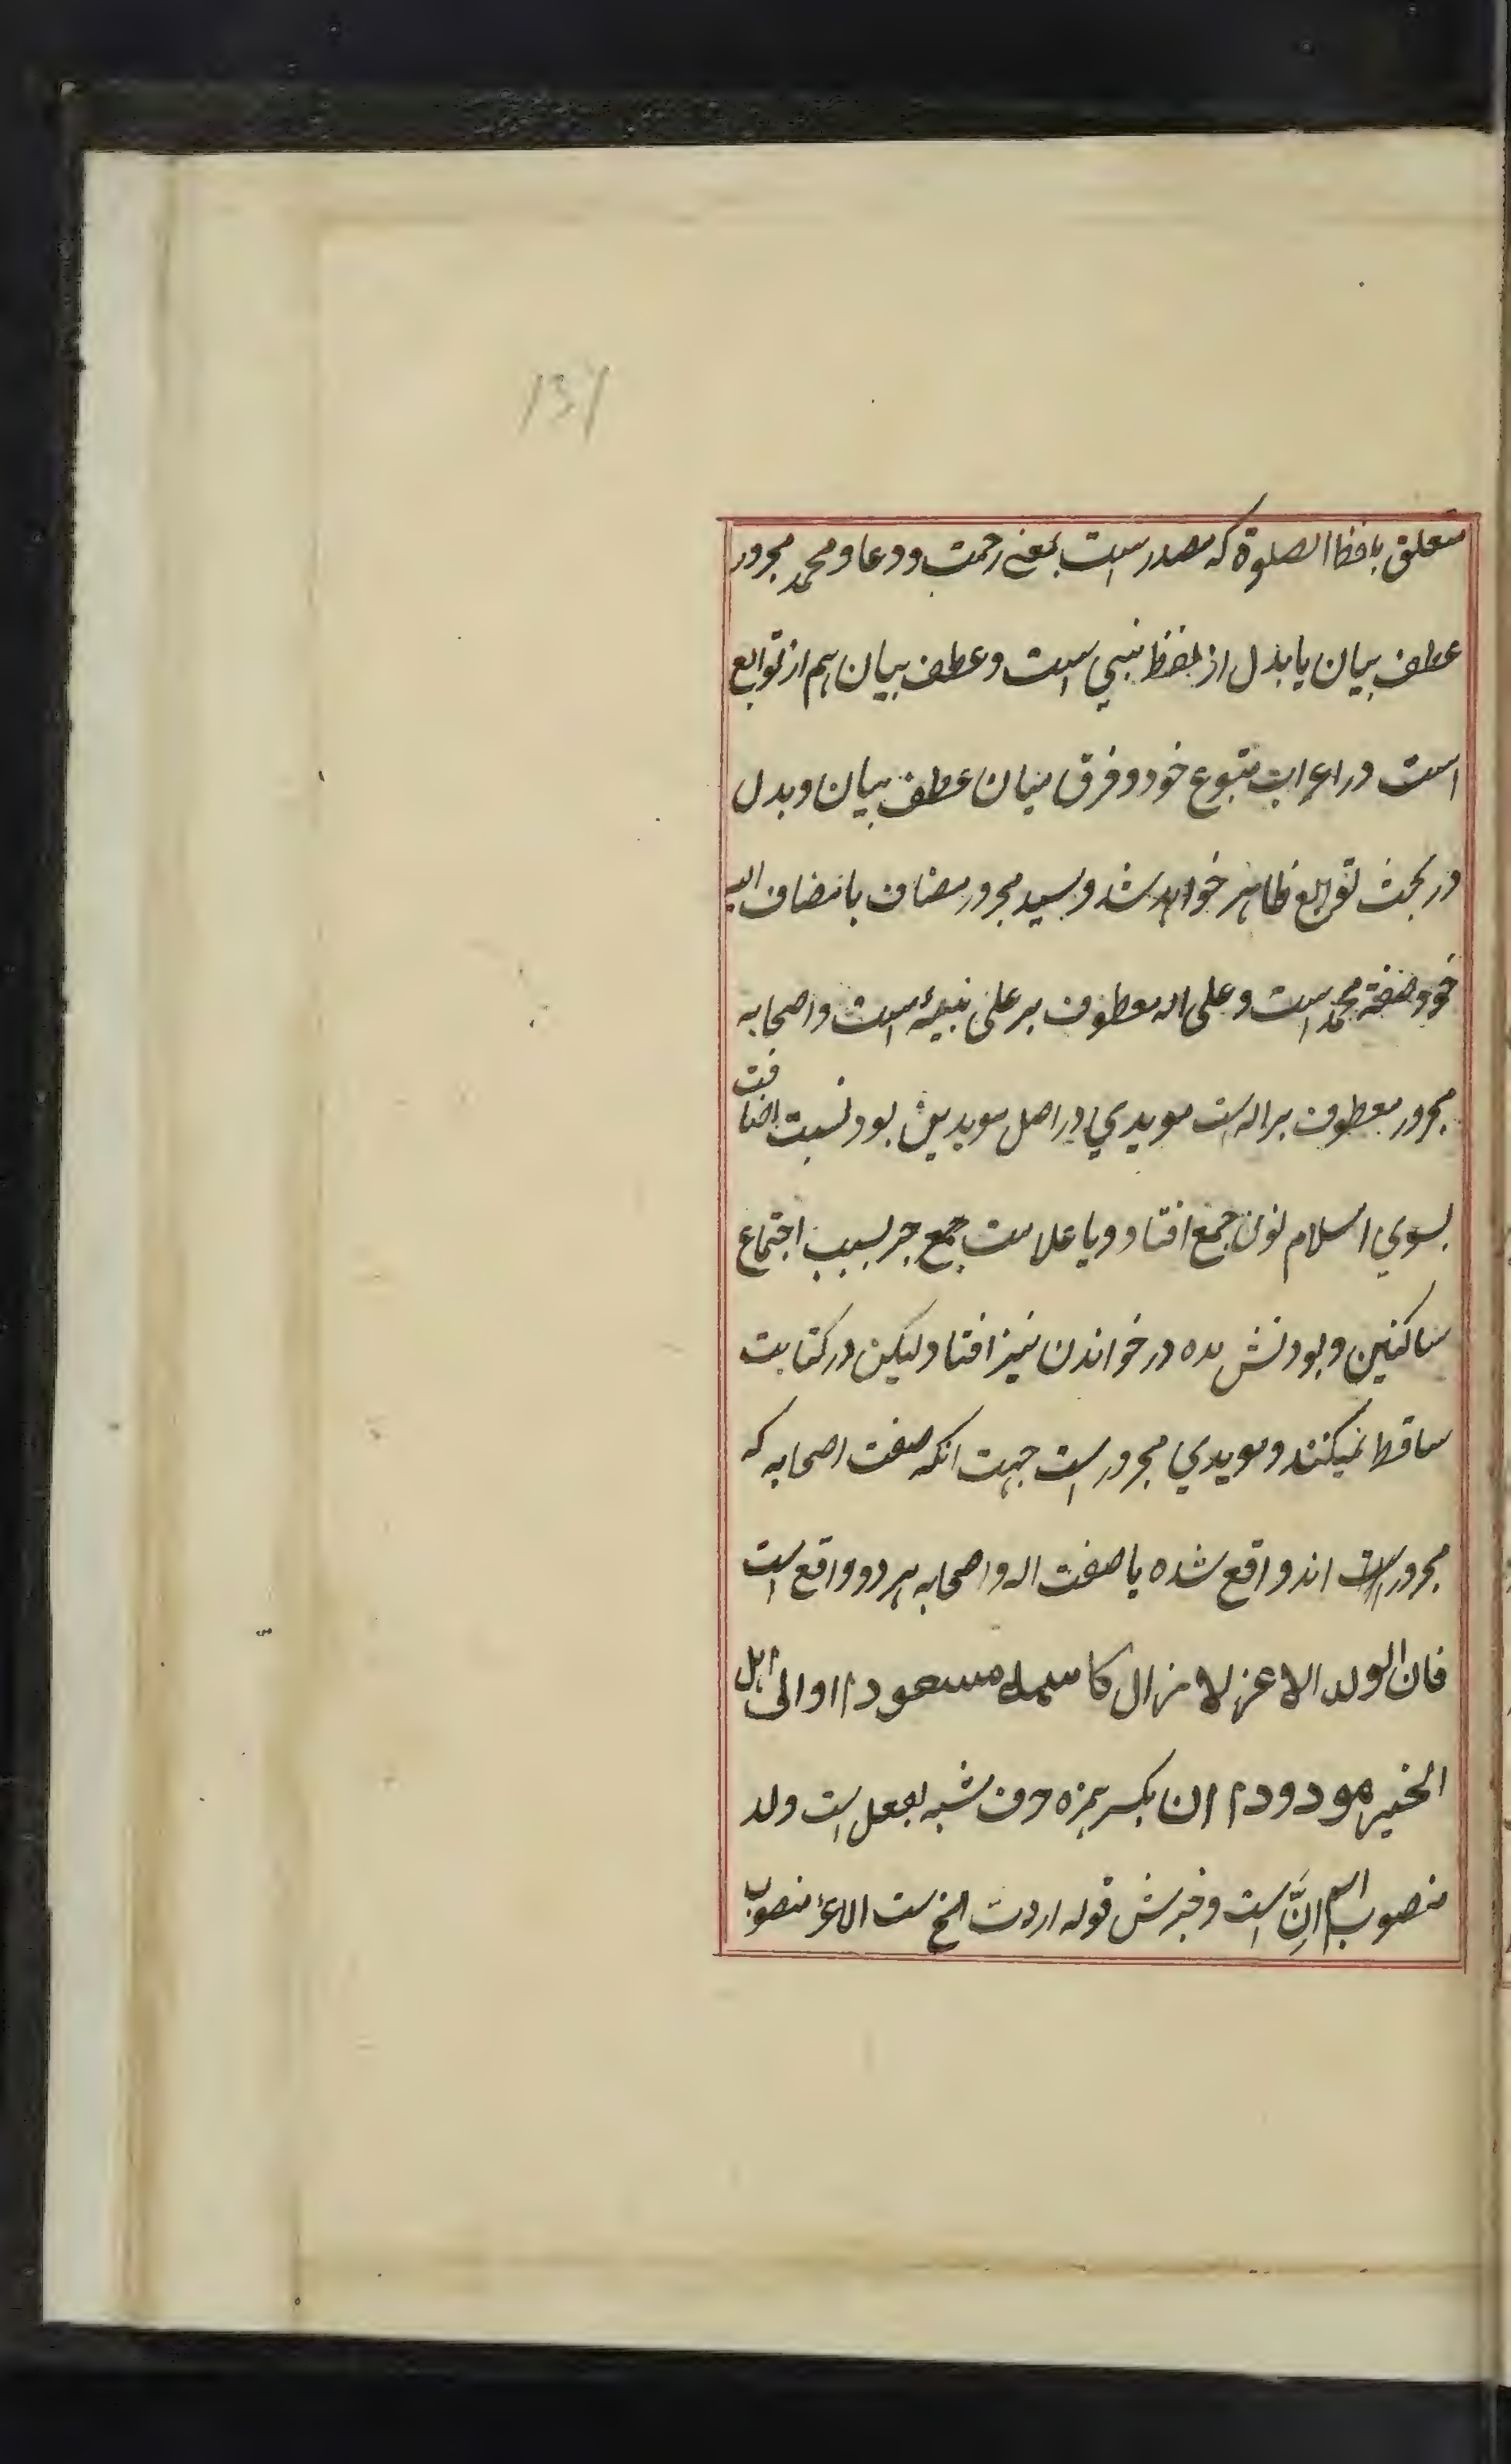 131
متعلق بلفظ الصلوة که مصدر است بمعنے رحمت و دعا و محمد مجرور
عطف بیان یا بدل از لفظ نبی است و عطف بیان هم از توابع
است در اعراب متبوع خود و فرق میان عطف بیان و بدل
در بحث توابع ظاهر خواهد شد و سید مجرور مضاف با مضاف الیه
خود صفة محمد است و علی اله معطوف بر علی نبیه است و اصحابه
مجرور معطوف بر اله است مویدي در اصل مویدین بود نسبت اضافت
بسوي اسلام نون جمع افتاد و یا علامت جمع جر بسبب اجتماع
ساکنین و بودنش مده در خواندن نیز افتاد لیکن در کتابت
ساقط نمیکنند و مویدي مجرور است جهت انکه صفت اصحابه که
مجرور است اند واقع شده یا صفت اله و اصحابه هر دو واقع است
فان الولد الاعز لا زال کاسمه مسعودا و الی اهل
الخیر مودودا ان بکسر همزه حرف مشبه بفعل است ولد
منصوب اسم اِنَّ است و خبرش قوله اردت الخ است الاعز منصوب